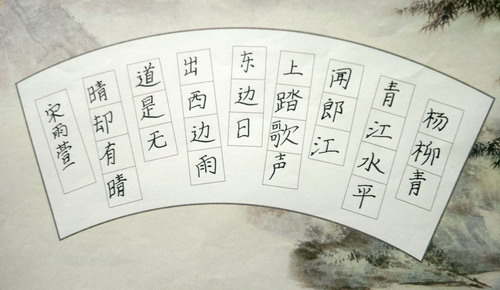 杨柳青
青江水平
闻郎江
上踏歌声
东边日
出西边雨
道是无
晴却有晴
宋雨萱